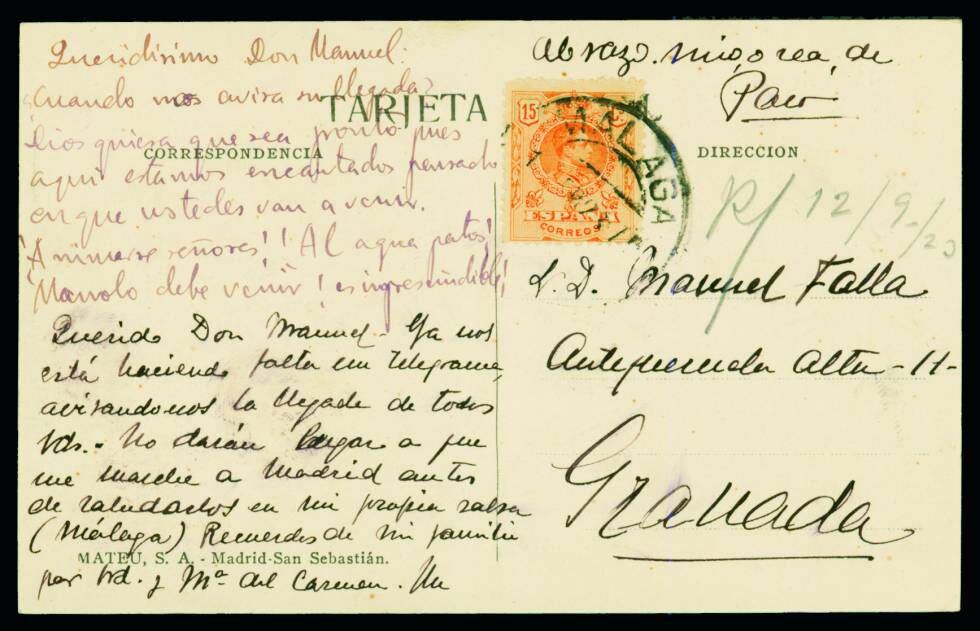 Queridísimo Don Manuel:
¿Cuando nos avisa su llegada?
Dios quiera que sea pronto pues
aquí estamos encantados pensado
en que ustedes van a venir.
¡Animarse señores! ¡Al agua patos!
¡Manolo debe venir! ¡es ingrescindible!
TARJETA
CORRESPONDENCIA
Querido Don Manuel - Ya nos
está haciendo falta un telegrama,
avisandonos la llegada de todos
Vds. - No darán lugar a que
me marche a Madrid antes
de saludarlos en mi propia salsa
(Málaga) Recuerdos de mi familia
MATEU, S. A. - Madrid-San Sebastián.
por Vd. y Mª del Carmen. Un
abrazo mio, o sea, de
Paco
15 Cs
ESPAÑA
CORREOS
MALAGA
DIRECCION
R/ 12/9-/23
S. D. Manuel Falla
Antequeruela Alta - 11-
Granada